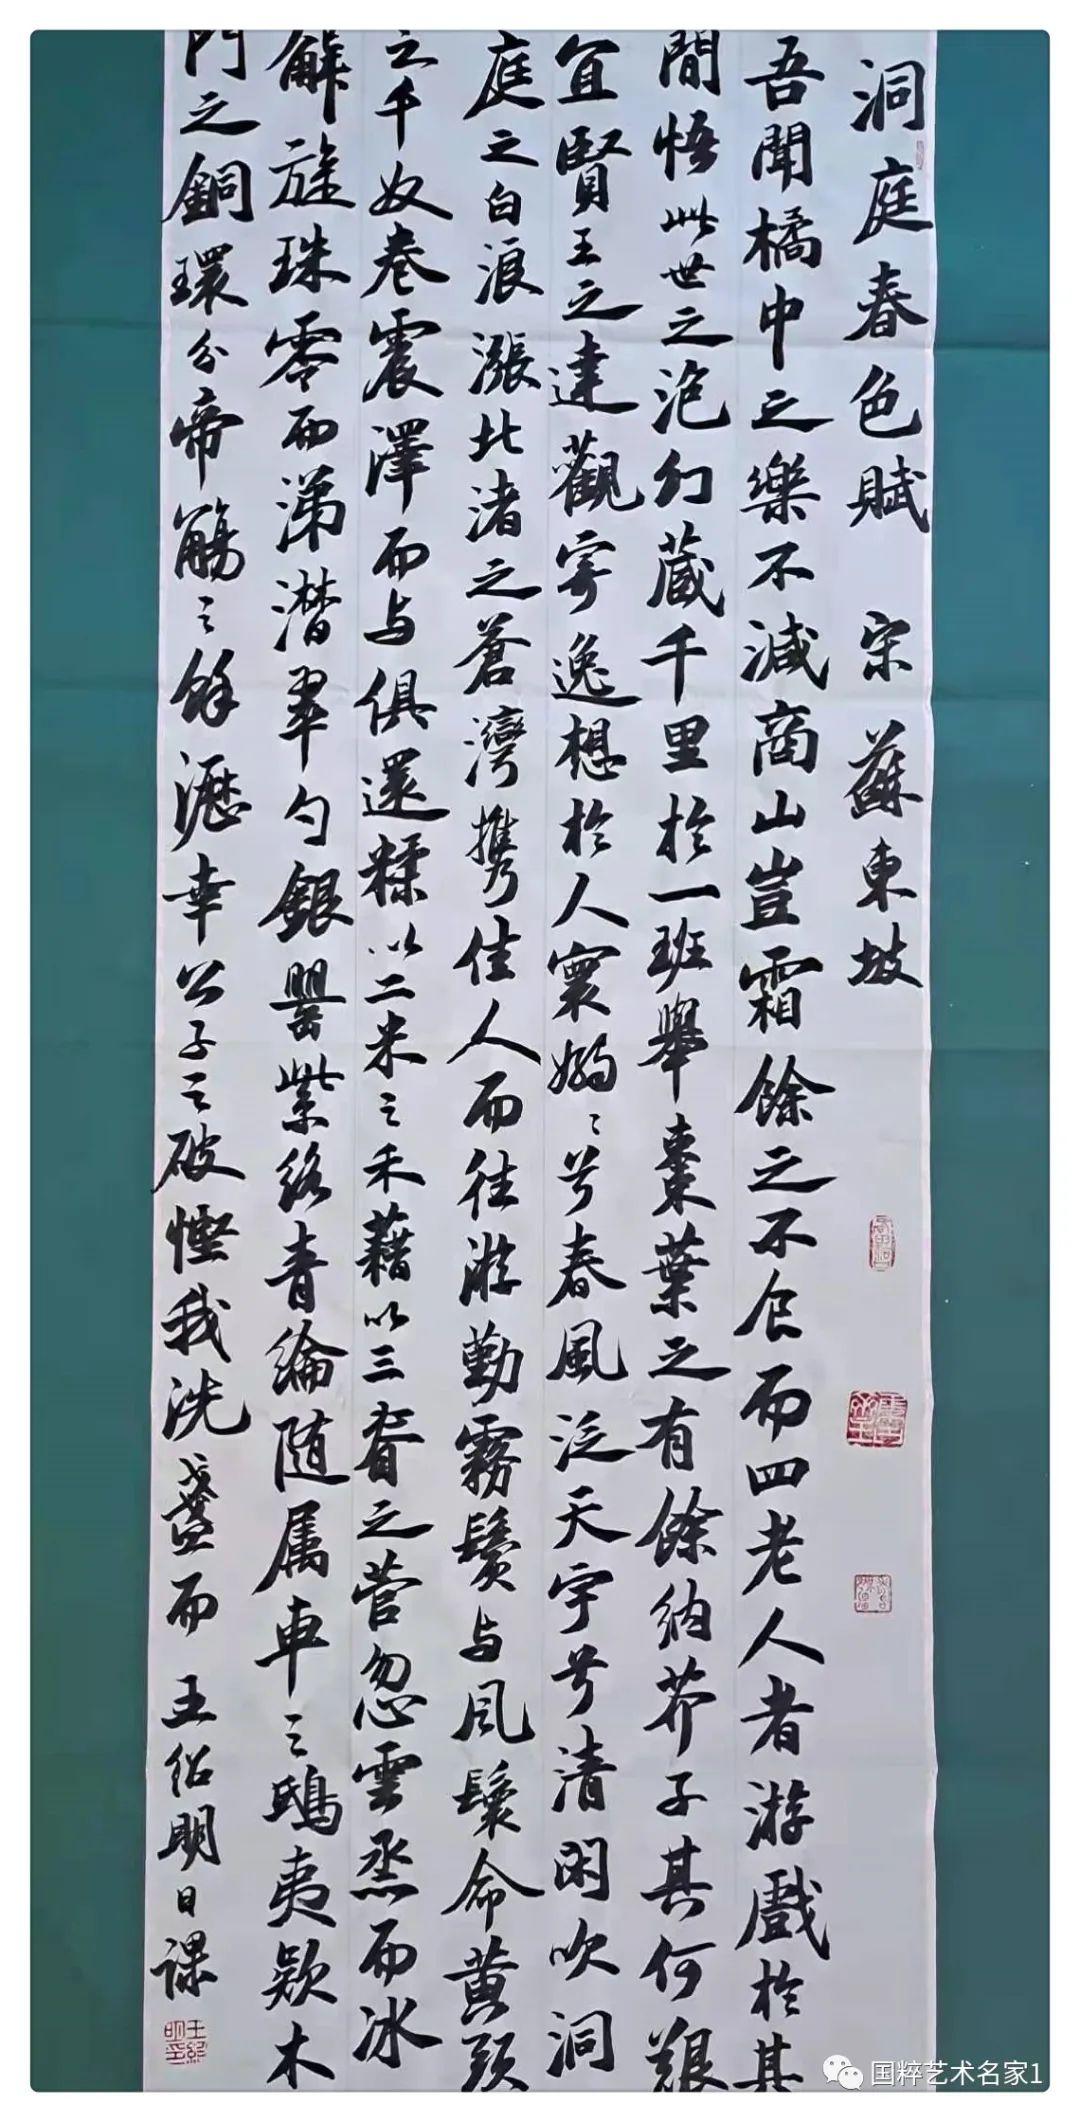 洞庭春色賦 宋 蘇東坡
吾聞橘中之樂不減商山豈霜餘之不食而四老人者游戲於其
間悟此世之泡幻藏千里於一班舉棗葉之有餘納芥子其何艱
宜賢王之達觀寄逸想於人寰嫋〻兮春風泛天宇兮清閑吹洞
庭之白浪漲北渚之蒼灣携佳人而往游勤霧鬢与風鬟命黄頭
之千奴卷震澤而与俱還糅以二米之禾藉以三脊之菅忽雲烝而冰
解旋珠零而涕潸翠勺銀罌紫絡青綸随属車之鴟夷款木
門之銅環分帝觴之餘瀝幸公子之破慳我洗盞而 王紹明日課
王紹明印
国粹艺术名家1